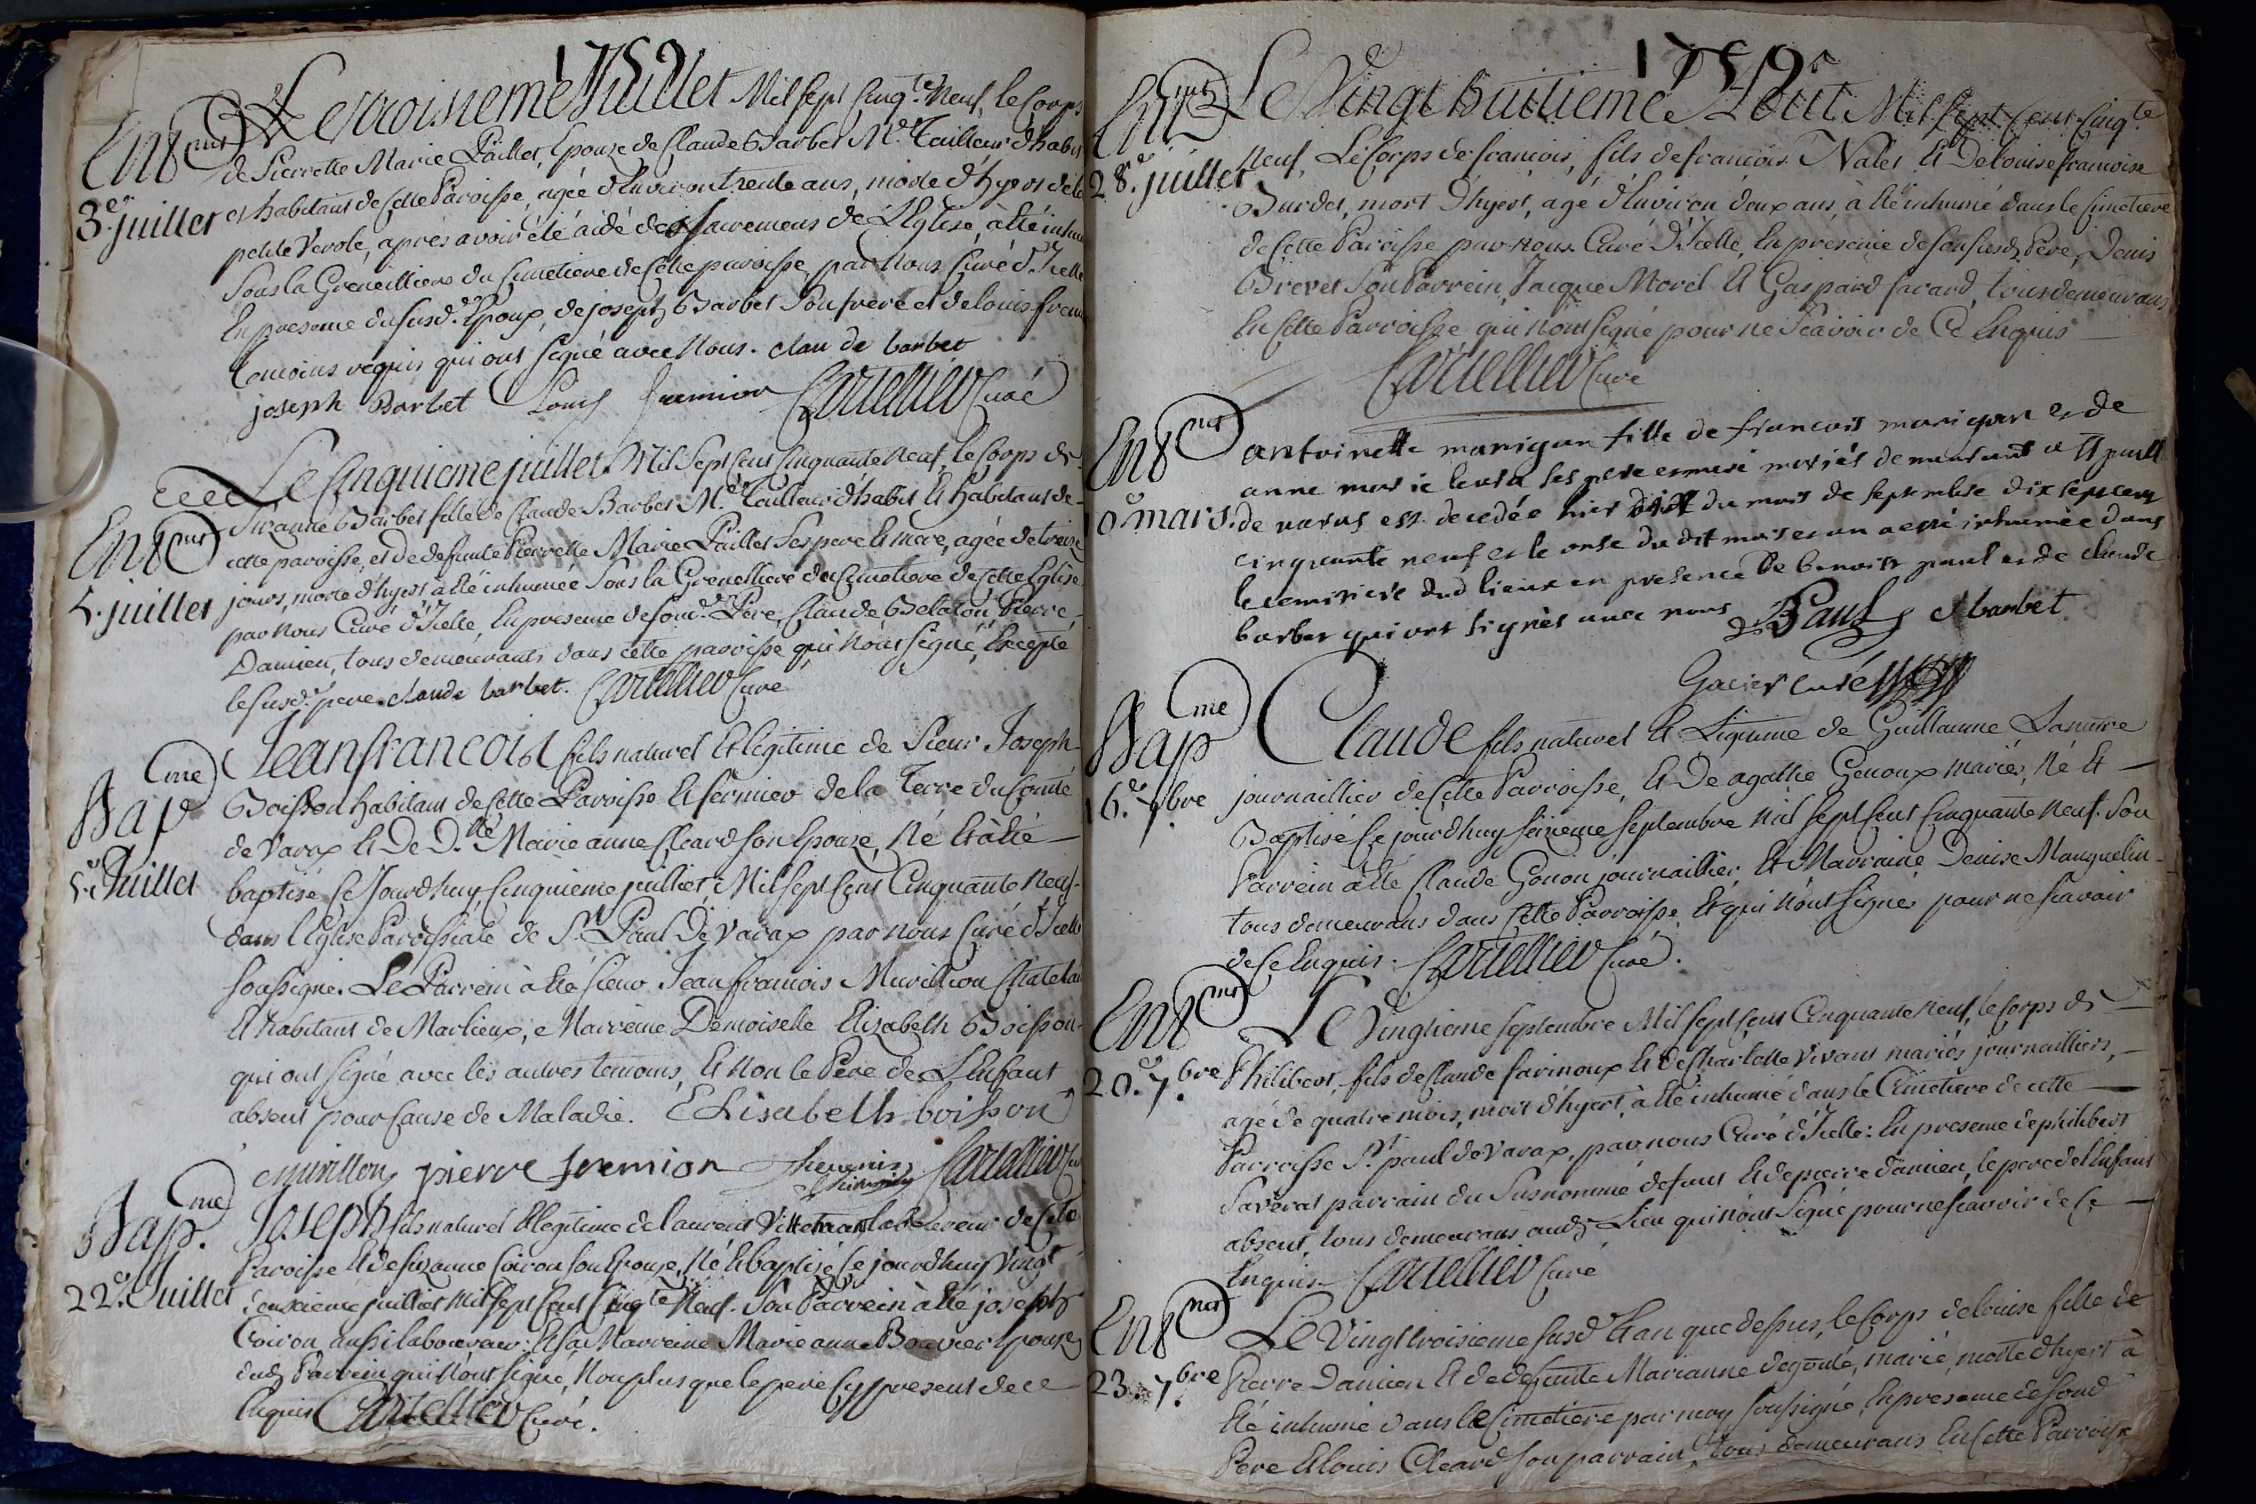 1759
Ent.mt Le troisieme Juillet Mil sept Cinq.te Neuf, le Corps
de Pierrette Marie Paillet, Epouze de Claude Barbet M.e Tailleur d'habit
3.e juillet et habitant de Cette Paroisse, agée d'Environ trente ans, morte d'hyer de la
petite Verole, après avoir été aidé des sacremens de L'Eglise, à été inhu
Sous la Greneilliere du Cimetiere de Cette paroisse par Nous Curé d'Icelle
En presence du susd. Epoux, de joseph Barbet Son frere et de louis frem
temoins requis qui ont signé avec Nous. clau de barbet
joseph Barbet Louis fremion Cartellier Curé
Le Cinquieme juillet Mil Sept Cent Cinquante neuf, le Corps de
Ent.mt Suzanne Barbet fille de Claude Barbet M.e Tailleur d'habit, Et habitant de
cette paroisse, et de defunte Pierrette Marie Paillet Ses pere Et mere, agée de treize
5. juillet jours, morte d'hyer à été inhumée Sous la Grenelliere du Cimetiere de Cette Eglise
par Nous Curé d'Icelle, En presence de son d. Père, Claude Belaton Pierre
Damien, tous demeurants dans cette paroisse qui n'ont signé, Excepté
le susd. pere. claude barbet. Cartellier Curé
Bap.me Jean francois fils naturel Et legitime de Sieur Joseph
Boisson habitant de Cette Paroisse Et fermier de la Terre du Comté
de Varax Et De D.lle Marie anne Cleard son Epouze, Né Et à Eté
5.e Juillet baptisé Ce Jourd'huy, Cinquieme juillet, Mil Sept Cent Cinquante Neuf
dans l'Eglise Paroissiale de S.t Paul De Varax par nous Curé d'Icelle
soussigné. Le Parrein à été sieur Jean francois Murillion Chatelain
Et habitant de Marlieux, e Marreine Demoiselle Elizabeth Boisson
qui ont signé avec les autres temoins, Et Non le Père de L'Enfant
absent pour Cause de Maladie. Elisabeth boisson
murillion pierre fremion thevenin Cartellier Cu
Bap.me Joseph fils naturel Et legitime de laurent Villeman laboureur de Cette
Paroisse Et de suzanne Coiron son Epouze, Né Et baptisé Ce jourd'huy Vingt
22.e Juillet deuxieme juillet Mil Sept Cent Cinq.te Neuf. Son Parrein à été joseph
Coiron aussi laboureur: Et sa Marreine Marie anne Bouvier Epouze
dud. Parrein qui n'ont signé, Non plus que le pere Cy present de ce
Enquis Cartellier Curé.
1759
Ent.mt Le Vingt huitieme Aout Mil Sept Cent Cinq.te
28.e juillet neuf, Le Corps de francois, fils de francois Nalet Et De louise francoise
Burdet, mort d'hyer, agé d'Environ deux ans, à été inhumé dans le Cimetiere
de Cette Paroisse par Nous Curé d'Icelle, En presence de son susd. Père, Denis
Brevet Son Parrein, Jacque Morel Et Gaspard facard, tous demeurans
En Cette Parroisse qui n'ont signé pour ne Scavoir de Ce Enquis
Cartellier Curé
Ent.mt antoinette manigan fille de francois manigan et de
anne marie ses pere et mere mariés demeurant a St paul
10.e mars. de varas est decedée hier du mois de septembre dix sept cent
cinquante neuf et le onse du dit mois et an a eté inhumée dans
le cemitiere dud lieux en presence de benoist paul et de claude
barbet qui ont signés avec nous B Paul Cl barbet
Gacier curé
Bap.me Claude fils naturel Et Ligitime de Guillaume Lanoire
journaillier de Cette Parroisse, Et De agathe Genoux mariés, Né Et
16.e 7.bre Baptisé Ce jourd'huy seizieme septembre mil sept Cent Cinquante neuf. Son
Parrein à été Claude Gonon journaillier, Et Marraine Denise Manguelin
tous demeurans dans Cette Parroisse Et qui N'ont signés pour ne scavoir
de Ce Enquis. Cartellier Curé.
Ent.mt Le Vingtieme septembre Mil sept Cent Cinquante Neuf, le Corps de
20.e 7.bre Philibert fils de Claude farinoux Et de Charlotte Vivant mariés journailliers,
agé de quatre mois, mort d'hyer, à été inhumé dans le Cimetiere de cette
Parroisse S.t paul de Varax, par nous Curé d'Icelle: En presence de philibert
Saverat parrain du Susnommé defunt Et de pierre damien, le pere de l'Enfant
absent, tous demeurans aud. Lieu qui n'ont Signé pour ne scavoir de Ce
Enquis. Cartellier Curé
Ent.mt Le Vingt troisieme susd. Et an que dessus, le Corps de louise fille de
23.e 7.bre Pierre Damien Et de defunte Marianne degouté, marié, morte d'hyer à
Eté inhumé dans le Cimetiere par moy soussigné, En presence de son d.
Père Et louis Cleard son parrain, tous demeurans En Cette Parroisse